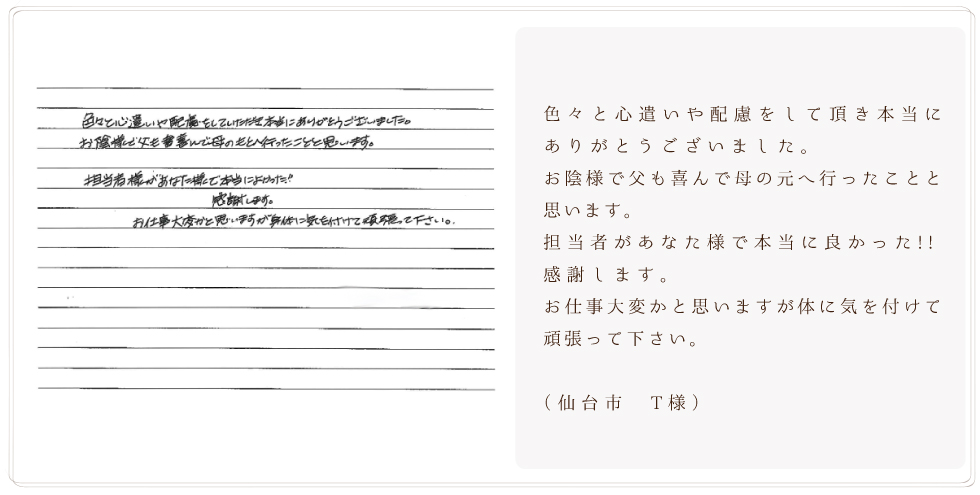 色々と心遣いや配慮をしていただき本当にありがとうございました。
お陰様で父も喜んで母のもとへ行ったことと思います。
担当者様があなた様で本当によかった!!
感謝します。
お仕事大変かと思いますが身体に気を付けて頑張って下さい。
色々と心遣いや配慮をして頂き本当に
ありがとうございました。
お陰様で父も喜んで母の元へ行ったことと
思います。
担当者があなた様で本当に良かった!!
感謝します。
お仕事大変かと思いますが体に気を付けて
頑張って下さい。
(仙台市 T様)